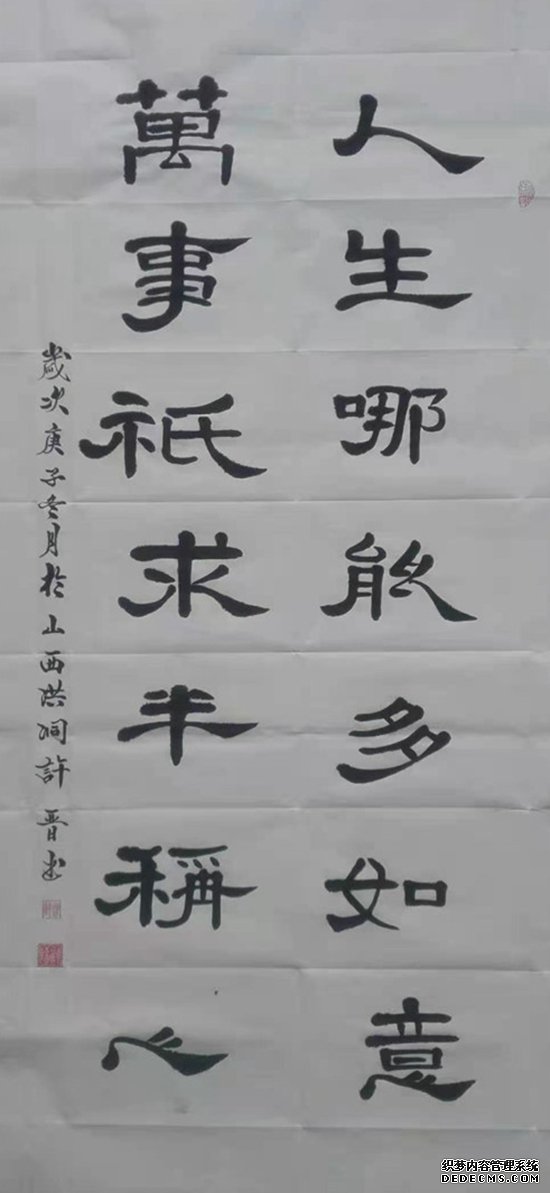 人生哪能多如意
萬事祇求半稱心
歲次庚子冬月於山西洪洞許晉書
织梦内容管理系统
DEDECMS.COM